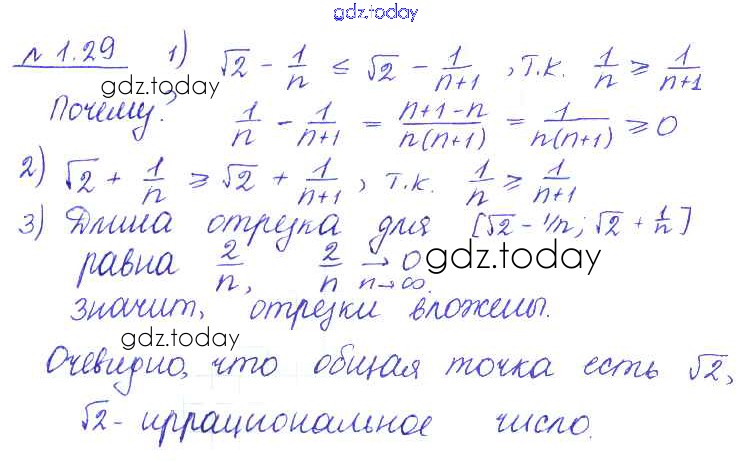 gdz.today
№ 1.29 1) √2 - 1/n ≤ √2 - 1/(n+1), т.к. 1/n ≥ 1/(n+1)
gdz.today
Почему? 1/n - 1/(n+1) = (n+1-n)/(n(n+1)) = 1/(n(n+1)) ≥ 0
2) √2 + 1/n ≥ √2 + 1/(n+1), т.к. 1/n ≥ 1/(n+1)
3) Длина отрезка для [√2 - 1/n; √2 + 1/n]
равна 2/n, 2/n → 0 n→∞.
gdz.today
значит, отрезки вложены.
gdz.today
Очевидно, что общая точка есть √2,
√2 - иррациональное число.
gdz.today